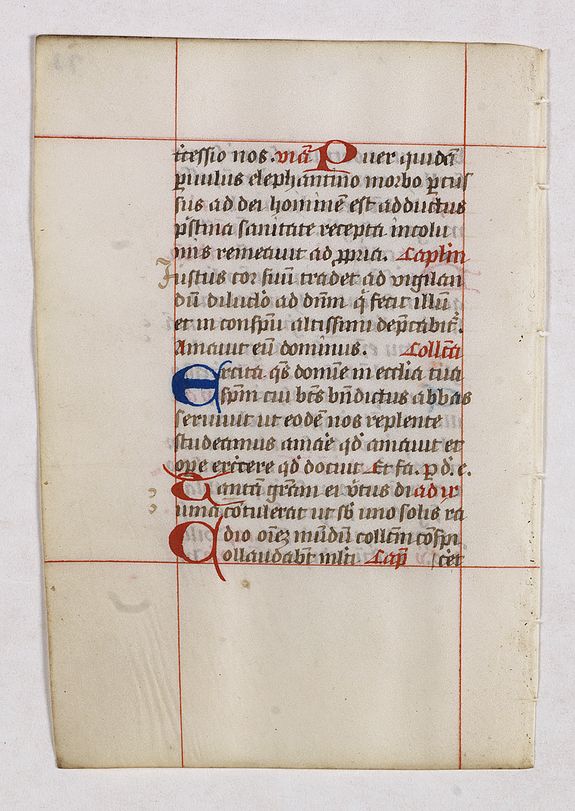 tcessio nos. viā Puer quidā
pvulus elephantino morbo pcus
sus ad dei hominē est adductus
pstina sanitate recepta incolu
mis remeavit ad ppria. Caplm
Iustus cor suū tradet ad vigilan
dū diluclo ad dnm q fecit illū
et in conspu altissimi depcabit.
Amavit eū dominus. Collcta
Excita qs domie in ecclia tua
spm cui bts bndictus abbas
servivit ut eodē nos replente
studeamus amae qd amavit et
ope exicere qd docuit. Et fa. p d. e.
Tantā grcam ei vtus di ad v
uma cōtulerat ut sb uno solis ra
dio oēz mūdū collcm cōspi
Collaudabt mlti Cap cet